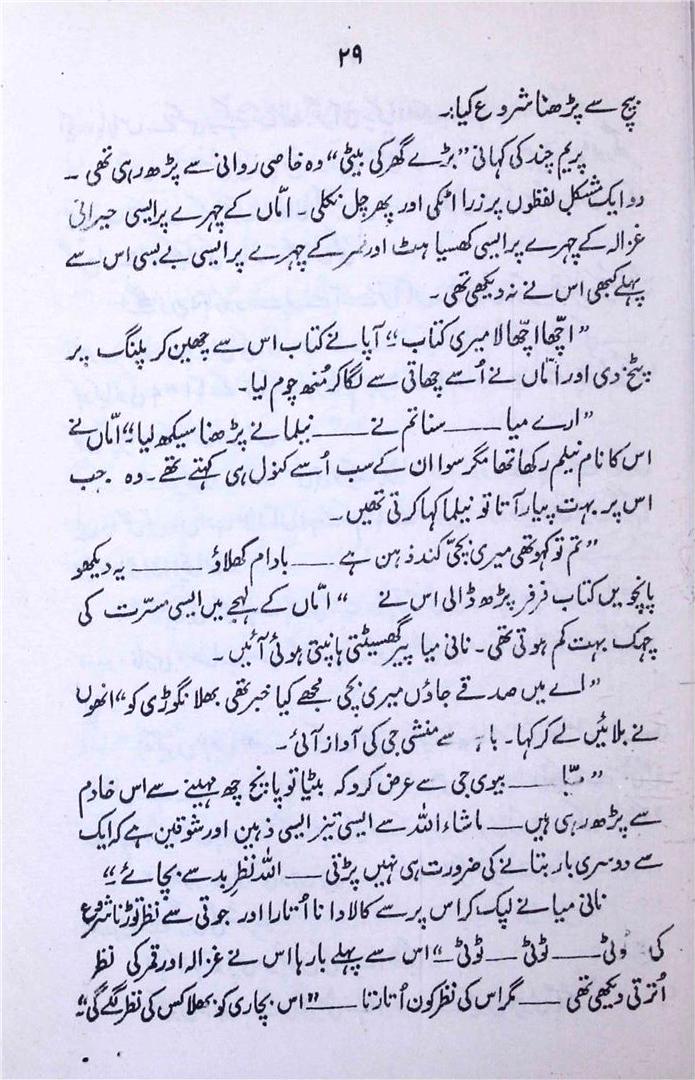 ۲۹
بیچ سے پڑھنا شروع کیا:۔
پریم چند کی کہانی "بڑے گھر کی بیٹی" وہ خاصی روانی سے پڑھ رہی تھی ۔
دو ایک مشکل لفظوں پر زرا اٹکی اور پھر چل نکلی ۔ امّاں کے چہرے پر ایسی حیرانی
غزالہ کے چہرے پر ایسی کھسیاہٹ اور قمر کے چہرے پر ایسی بے بسی اس سے
پہلے کبھی اس نے نہ دیکھی تھی ۔
"اچھا اچھا لا میری کتاب" آپا نے کتاب اس سے چھین کر پلنگ پر
پٹخ دی اور امّاں نے اُسے چھاتی سے لگا کر منھ چوم لیا۔
"ارے میا ـــــ سنا تم نے ـــــ نیلما نے پڑھنا سیکھ لیا" امّاں نے
اس کا نام نیلم رکھا تھا مگر سوا ان کے سب اُسے کنول ہی کہتے تھے ۔ وہ جب
اس پر بہت پیار آتا تو نیلما کہا کرتی تھیں ۔
"تم تو کہو تھی میری بچی کند ذہن ہے ـــــ بادام کھلاؤ یہ دیکھو
پانچویں کتاب فرفر پڑھ ڈالی اس نے " امّاں کے لہجے میں ایسی مسرّت کی
چہک بہت کم ہوتی تھی ۔ نانی میا پیر گھسیٹتی ہانپتی ہوئی آئیں ۔
"اے میں صدقے جاؤں میری بچی مجھے کیا خبر تھی بھلا نگوڑی کو" انھوں
نے بلائیں لے کر کہا ۔ باہر سے منشی جی کی آواز آئی ۔
" ـــــ بیوی جی سے عرض کرو کہ بٹیا تو پانچ چھ مہینے سے اس خادم
سے پڑھ رہی ہیں ـــــ ماشاء اللہ سے ایسی تیز ایسی ذہین اور شوقین ہے کہ ایک
سے دوسری بار بتانے کی ضرورت ہی نہیں پڑتی ـــــ اللہ نظرِ بد سے بچائے"
نانی میا نے لپک کر اس پر سے کالا دانا اُتارا اور جوتی سے نظر توڑنا شروع
کی ٹوٹی ـــــ ٹوٹی ـــــ ٹوٹی" اس سے پہلے بارہا اس نے غزالہ اور قمر کی نظر
اُترتی دیکھی تھی ـــــ مگر اس کی نظر کون اُتارتا ـــــ "اس بچاری کو بھلا کس کی نظر لگے گی"